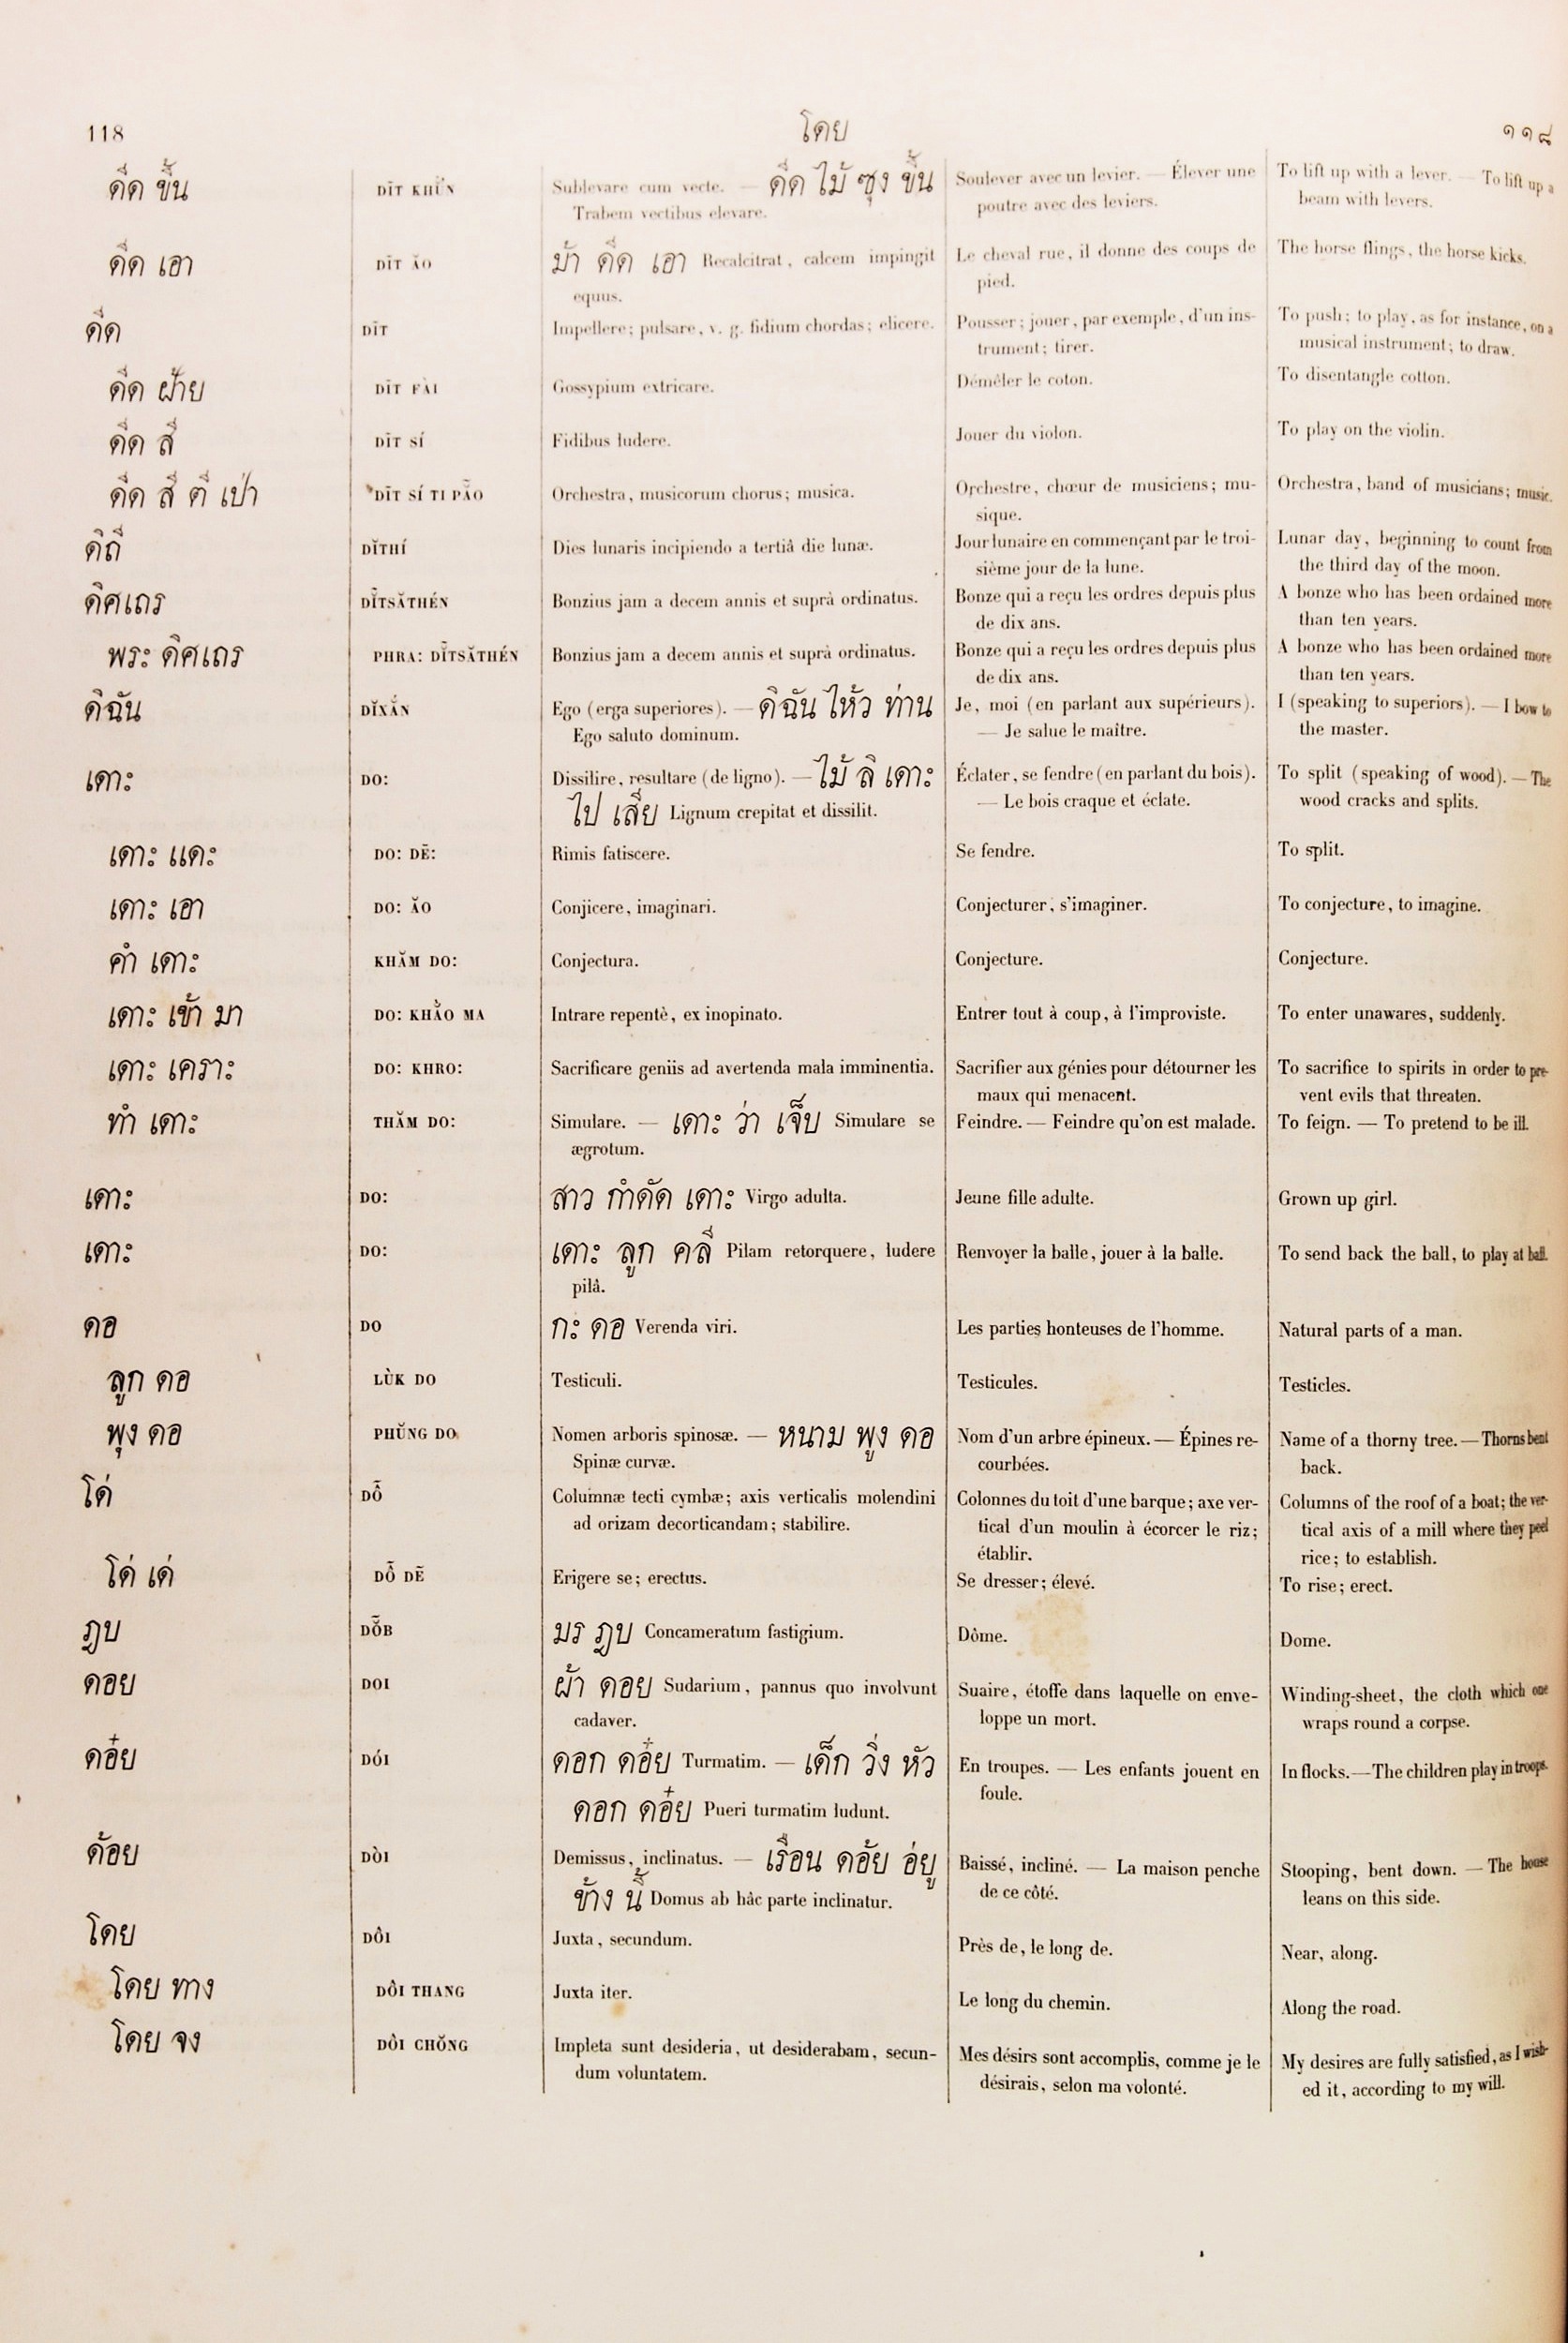 118 โดย ๑๑๘
ดีด ขึ้น DĪT KHŬ́N Sublevare cum vecte. — ดีด ไม้ ซุง ขึ้น Soulever avec un levier. — Élever une To lift up with a lever. — To lift up a
Trabem vectibus elevare. poutre avec des leviers. beam with levers.
ดีด เอา DĪT ĂO ม้า ดีด เอา Recalcitrat, calcem impingit Le cheval rue, il donne des coups de The horse flings, the horse kicks.
equus. pied.
ดีด DĪT Impellere; pulsare, v. g. fidium chordas; elicere. Pousser; jouer, par exemple, d'un ins- To push; to play, as for instance, on a
trument; tirer. musical instrument; to draw.
ดีด ฝ้าย DĪT FÀI Gossypium extricare. Démêler le coton. To disentangle cotton.
ดีด สี DĪT SÍ Fidibus ludere. Jouer du violon. To play on the violin.
ดีด สี ตี เป่า DĪT SÍ TI PÃO Orchestra, musicorum chorus; musica. Orchestre, chœur de musiciens; mu- Orchestra, band of musicians; music.
sique.
ดิถี DĬTHÍ Dies lunaris incipiendo a tertiâ die lunæ. Jour lunaire en commençant par le troi- Lunar day, beginning to count from
sième jour de la lune. the third day of the moon.
ดิศเถร DĬ̄TSĂTHÉN Bonzius jam a decem annis et suprà ordinatus. Bonze qui a reçu les ordres depuis plus A bonze who has been ordained more
de dix ans. than ten years.
พระ ดิศเถร PHRA: DĬ̄TSĂTHÉN Bonzius jam a decem annis et suprà ordinatus. Bonze qui a reçu les ordres depuis plus A bonze who has been ordained more
de dix ans. than ten years.
ดิฉัน DĬXẮN Ego (erga superiores). — ดิฉัน ไห้ว ท่าน Je, moi (en parlant aux supérieurs). I (speaking to superiors). — I bow to
Ego saluto dominum. — Je salue le maître. the master.
เดาะ DO: Dissilire, resultare (de ligno). — ไม้ ลิ เดาะ Éclater, se fendre (en parlant du bois). To split (speaking of wood). — The
ไป เสีย Lignum crepitat et dissilit. — Le bois craque et éclate. wood cracks and splits.
เดาะ แดะ DO: DĒ: Rimis fatiscere. Se fendre. To split.
เดาะ เอา DO: ĂO Conjicere, imaginari. Conjecturer, s'imaginer. To conjecture, to imagine.
คำ เดาะ KHĂM DO: Conjectura. Conjecture. Conjecture.
เดาะ เข้า มา DO: KHẰO MA Intrare repentè, ex inopinato. Entrer tout à coup, à l'improviste. To enter unawares, suddenly.
เดาะ เคราะ DO: KHRO: Sacrificare geniis ad avertenda mala imminentia. Sacrifier aux génies pour détourner les To sacrifice to spirits in order to pre-
maux qui menacent. vent evils that threaten.
ทำ เดาะ THĂM DO: Simulare. — เดาะ ว่า เจ็บ Simulare se Feindre. — Feindre qu'on est malade. To feign. — To pretend to be ill.
ægrotum.
เดาะ DO: สาว กำดัด เดาะ Virgo adulta. Jeune fille adulte. Grown up girl.
เดาะ DO: เดาะ ลูก คลี Pilam retorquere, ludere Renvoyer la balle, jouer à la balle. To send back the ball, to play at ball.
pilâ.
ดอ DO กะ ดอ Verenda viri. Les parties honteuses de l'homme. Natural parts of a man.
ลูก ดอ LÙK DO Testiculi. Testicules. Testicles.
พุง ดอ PHŬNG DO Nomen arboris spinosæ. — หนาม พูง ดอ Nom d'un arbre épineux. — Épines re- Name of a thorny tree. — Thorns bent
Spinæ curvæ. courbées. back.
โด่ DỖ Columnæ tecti cymbæ; axis verticalis molendini Colonnes du toit d'une barque; axe ver- Columns of the roof of a boat; the ver-
ad orizam decorticandam; stabilire. tical d'un moulin à écorcer le riz; tical axis of a mill where they peel
établir. rice; to establish.
โด่ เด่ DỖ DẼ Erigere se; erectus. Se dresser; élevé. To rise; erect.
ฎบ DŎ̃B มร ฎบ Concameratum fastigium. Dôme. Dome.
ดอย DOI ผ้า ดอย Sudarium, pannus quo involvunt Suaire, étoffe dans laquelle on enve- Winding-sheet, the cloth which one
cadaver. loppe un mort. wraps round a corpse.
ดอ๋ย DÓI ดอก ดอ๋ย Turmatim. — เด็ก วิ่ง หัว En troupes. — Les enfants jouent en In flocks. — The children play in troops.
ดอก ดอ๋ย Pueri turmatim ludunt. foule.
ด้อย DÒI Demissus, inclinatus. — เรือน ดอ้ย อ่ยู Baissé, incliné. — La maison penche Stooping, bent down. — The house
ข้าง นี้ Domus ab hâc parte inclinatur. de ce côté. leans on this side.
โดย DÔI Juxta, secundum. Près de, le long de. Near, along.
โดย ทาง DÔI THANG Juxta iter. Le long du chemin. Along the road.
โดย จง DÔI CHŎNG Impleta sunt desideria, ut desiderabam, secun- Mes désirs sont accomplis, comme je le My desires are fully satisfied, as I wish-
dum voluntatem. désirais, selon ma volonté. ed it, according to my will.